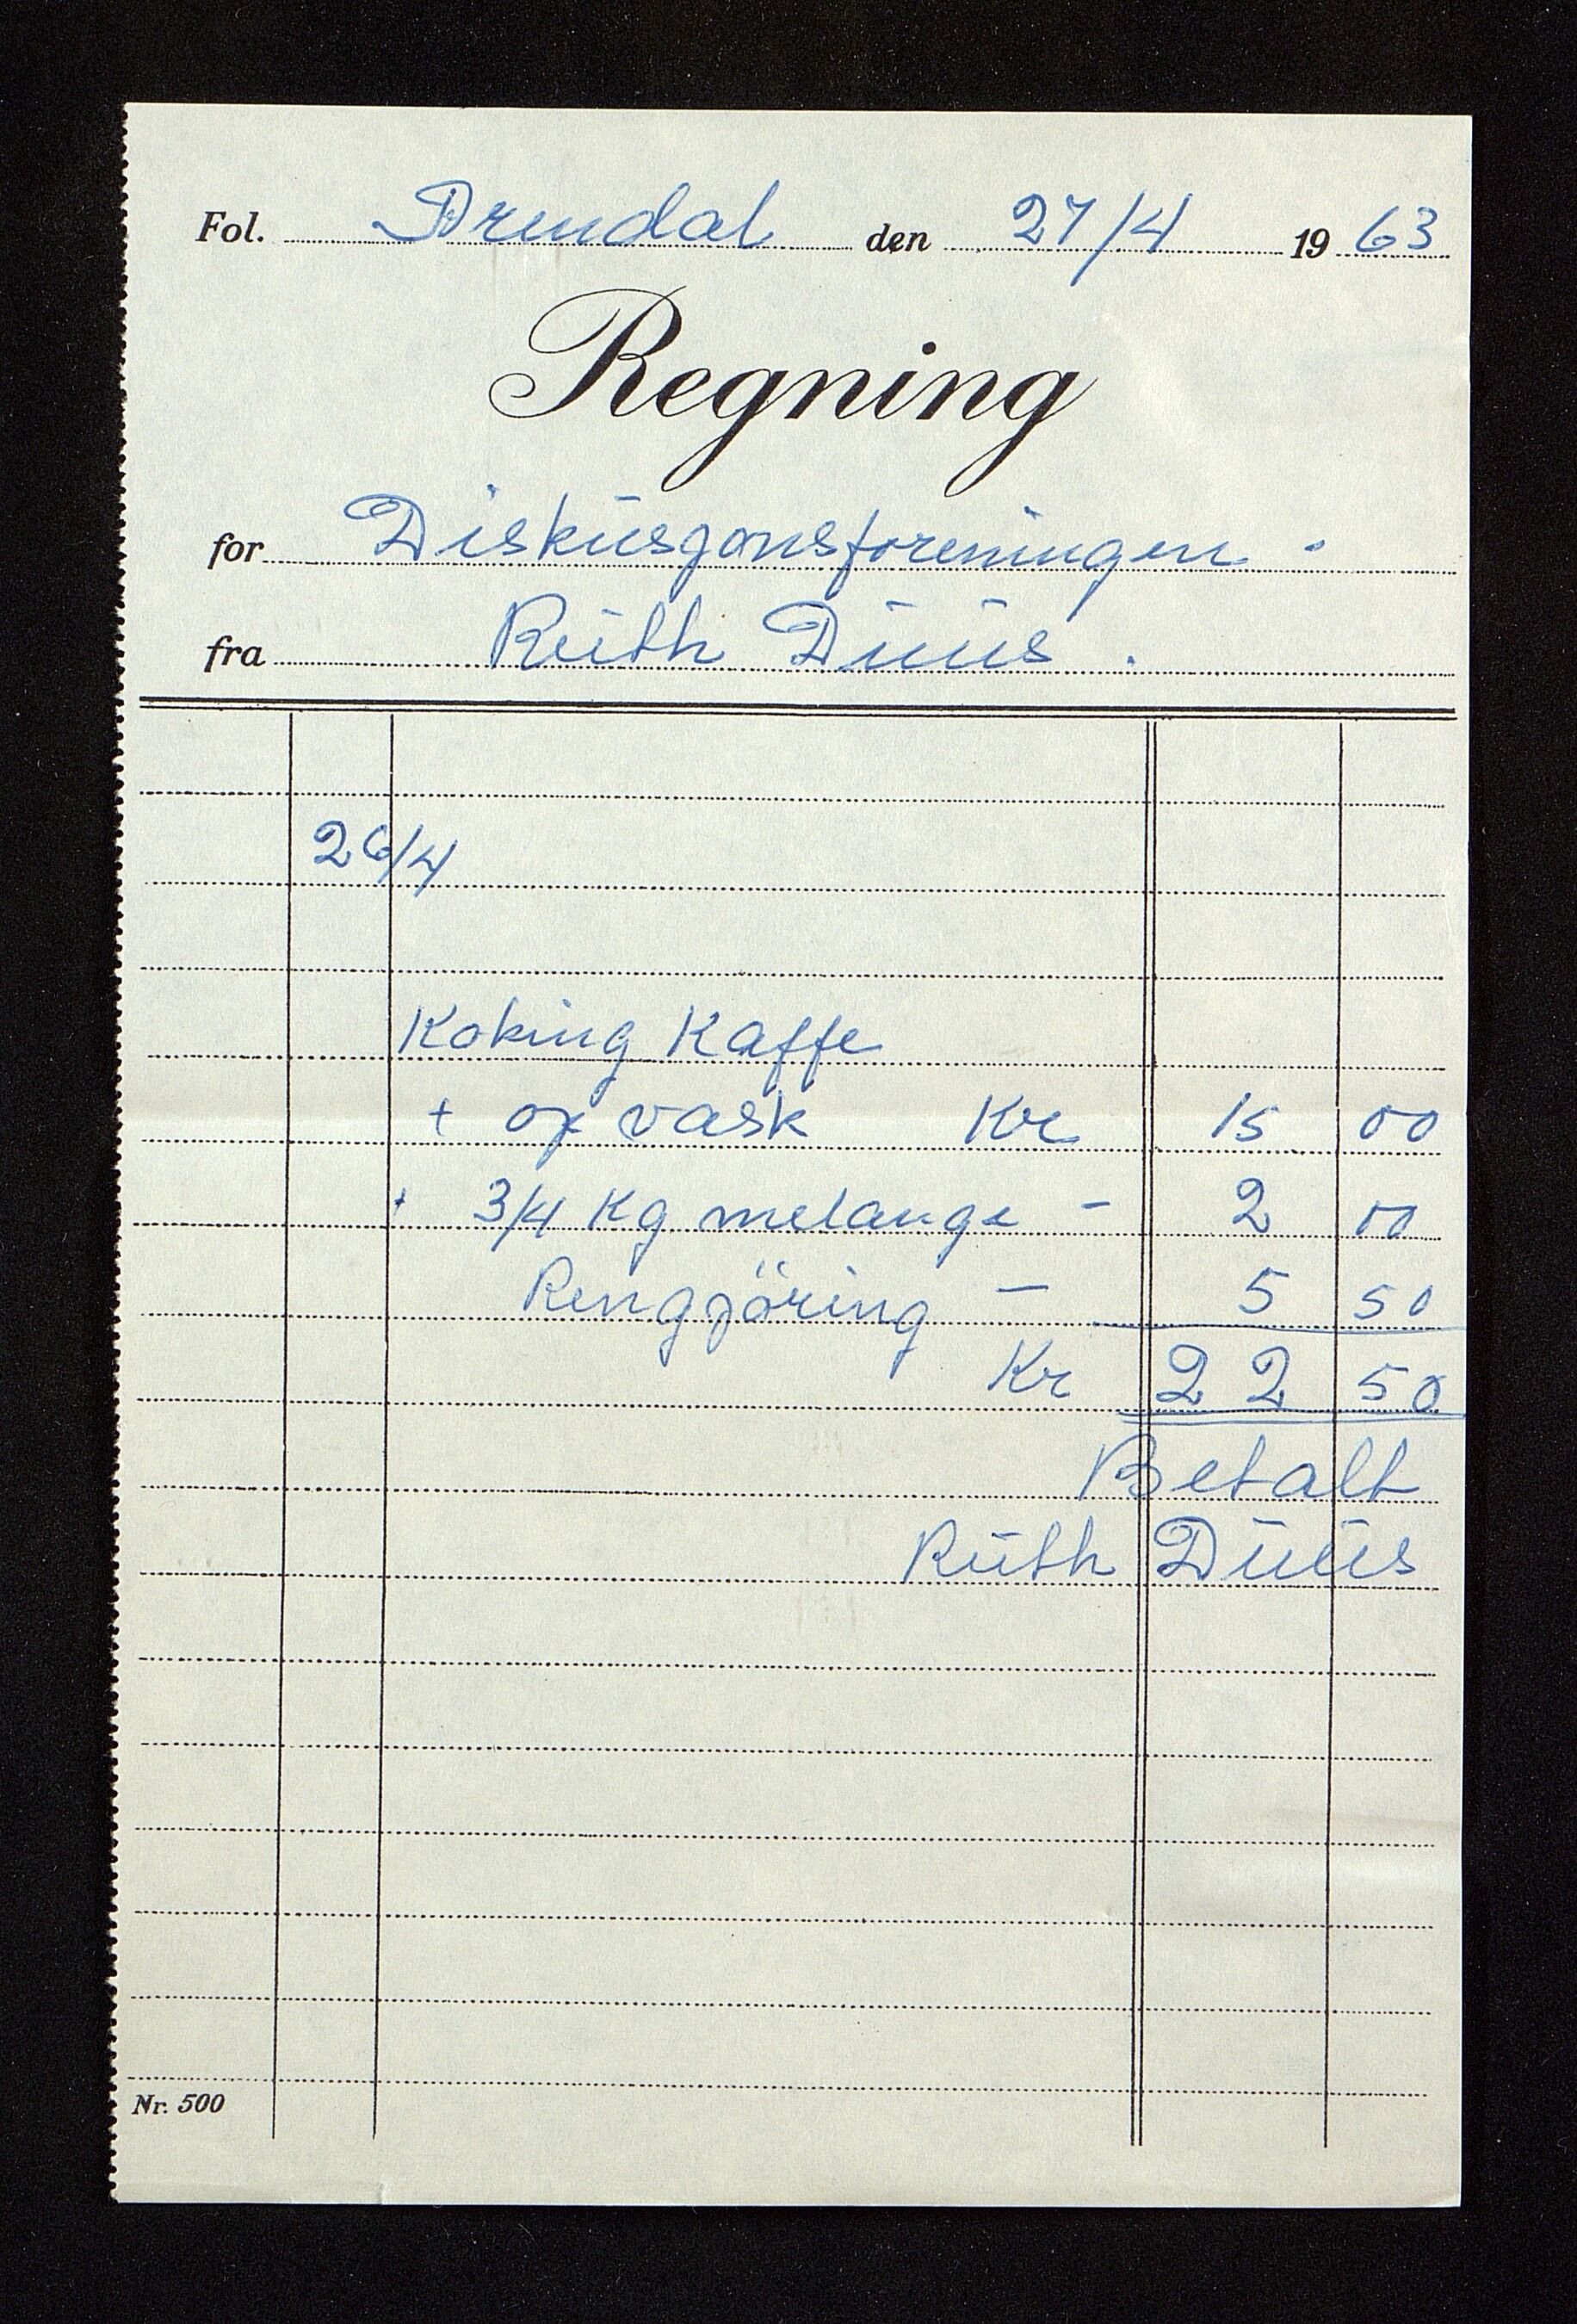 Fol. Arendal den 27/4 19 63
Regning
for Diskusjonsforeningen.
fra Ruth Duus.
26/4
Koking Kaffe
+ opvask Kr 15 00
+ 3/4 Kg melange - 2 00
Rengjöring - 5 50
Kr 22 50
Betalt
Ruth Duus
Nr. 500